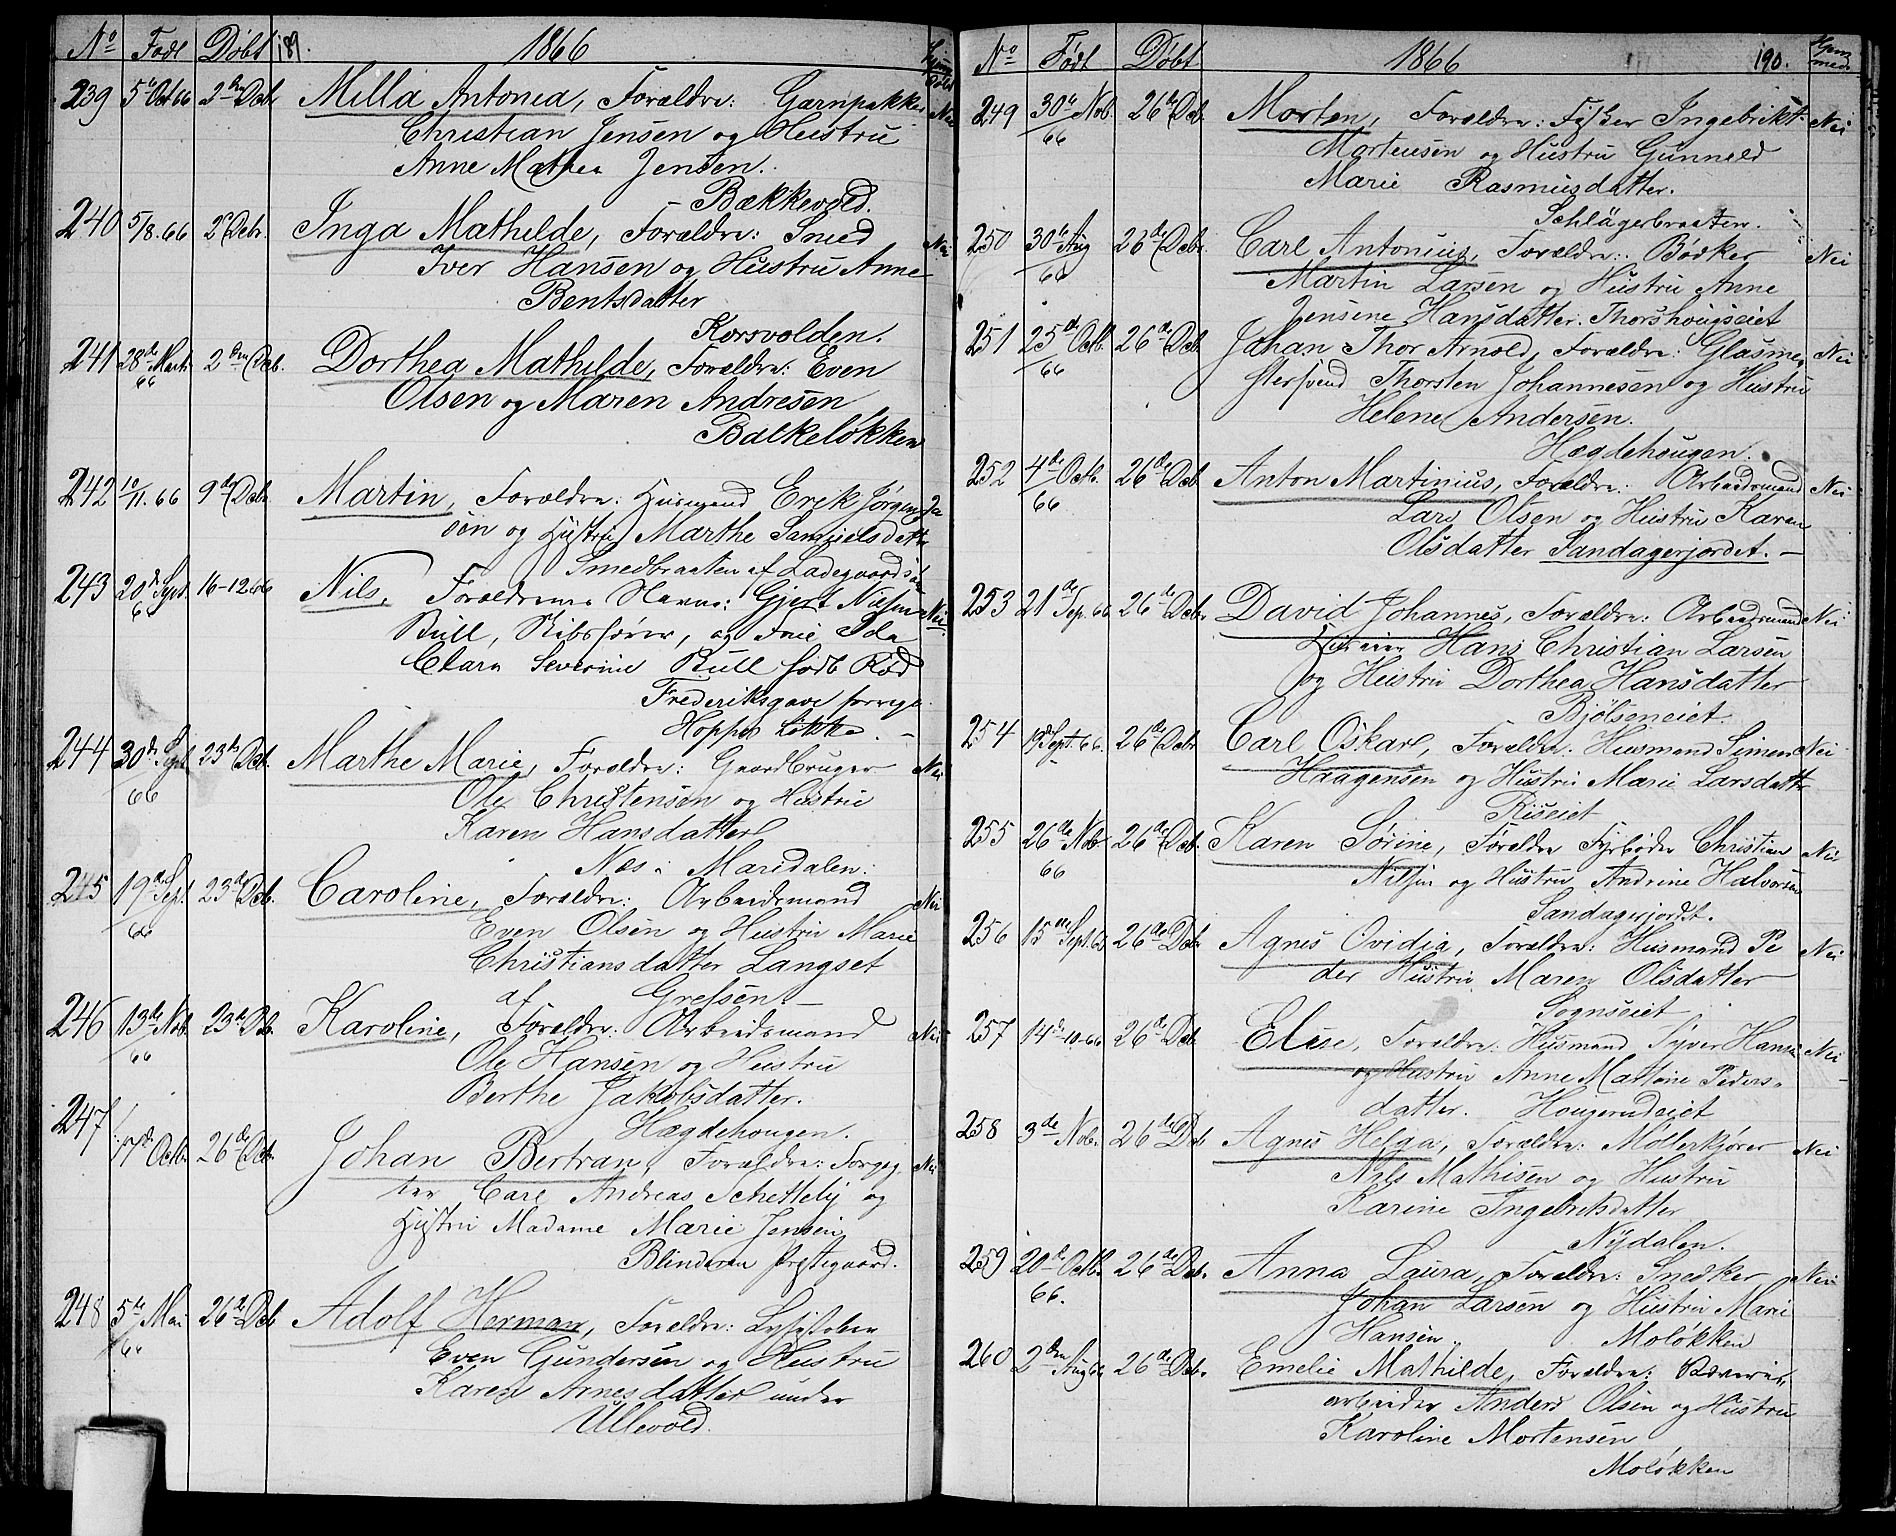 No Født Døbt 189. 1866
239 5te Oct 66 2den Dcb. Milla Antonea, Forældre: Garnpakker Nei
Christian Jensen og Hustru
Anne Mathea Jensen.
Bækkevold.
240 5/8. 66 2 Dcbr. Inga Mathilde, Forældre: Smed Nei
Iver Hansen og Hustru Anne
Bentsdatter
Korsvolden.
241 28de Marts 66 2den Dcb. Dorthea Mathilde, Forældre: Even
Olsen og Maren Andresen
Balkeløkken
242 10/11. 66 9de Dcbr. Martin, Forældre: Husmand Erik Jørgen Ja
sen og Hustru Marthe Samuelsdatter
Smedbraaten af Ladegaards
243 20de Sept. 66 16-12 66 Nils, Forældrenes Navne: Gjert Nielsen Nei
Bull, Skibsfører, og Frue Ida
Clara Severine Bull født Rød
Frederiksgave forrige
Hoppes Løkke. -
244 30de Sept. 66 23de Dcb. Marthe Marie, Forældre: Gaardbruger Nei
Ole Christensen og Hustru
Karen Hansdatter
Næs i Maridalen.
245 19de Sept. 66 23de Dcb. Caroline, Forældre: Arbeidsmand Nei
Even Olsen og Hustru Marie
Christiansdatter Langset
af Grefsen. -
246 13de Nob. 66 23de Dcb. Karoline, Forældre: Arbeidsmand Nei
Ole Hansen og Hustru
Berthe Jakobsdatter.
Hægdehougen.
247 17de Octb. 26de Dcb. Johan Bertran, Forældre: Forpag Nei
ter Carl Andreas Schetteby og
Hustru Madame Marie Jensen
Blindaren Præstegaard.
248 5te Mai 66 26de Dcb Adolf Herman, Forældre:
Even Gundersen og Hustru
Karen Arnesdatter under
Ullevold.
No Født Døbt 1866 190. Hjem med.
249 30te Nob. 66 26de Dcb. Morten, Forældre: Fisker Ingebrikt Nei
Mortensen og Hustru Gunneld
Marie Rasmusdatter.
Schlägerbraaten.
250 30te Aug 66 26de Dcbr. Carl Antonius, Forældre: Bødker Nei
Martin Larsen og Hustru Anne
Jensine Hansdatter. Thorshougseiet
251 25de Octb. 66 26de Dcb. Johan Thor Arnold, Forældre: Glasme Nei
stersvend Thorsten Johannesen og Hustru
Helene Andersen.
Hægdehougen.
252 4de Octb. 66 26de Dcb. Anton Martinius, Forældre: Arbeidsmand Nei
Lars Olsen og Hustru Karen
Olsdatter Sandagerjordet. -
253 21de Sep. 66 26de Dcbr. David Johannes, Forældre: Arbeidsmand Nei
Hans Christian Larsen
og Hustru Dorthea Hansdatter
Bjølseneiet.
254 19de Sept. 66 26de Dcbr. Carl Oskar, Forældre: Husmand Simen Nei
Haagensen og Hustru Marie Larsdatter
Riseiet
255 26de Nob. 66 26de Dcb. Karen Sørine, Forældre Fyrbøder Christian Nei
Nilsen og Hustru Andrine Halvorsen
Sandagerjordet.
256 15de Sept. 65 26de Dcb. Agnes Ovidia, Forældre: Husmand Pe Nei
der Hustru Maren Olsdatter
Sognseiet
257 14de-10-66 26de Dcb. Elise, Forældre: Husmand Syver Hansen Nei
og Hustru Anne Mathine Peders=
datter. Hougerudeiet
258 3de Nob. 26de Dcb Agnes Helga, Forældre: Møllerkjører Nei
Nils Mathisen og Hustru
Karine Ingebrektsdatter
Nydalen.
259 20de Octb. 66. 26de Dcb. Anna Laura, Forældre: Snedker Nei
Johan Larsen og Hustru Marie
Hansen. Moløkken
260 2den Aug 66 26de Dcb. Emelie Mathilde, Forældre: Væveri
arbeider Anders Olsen og Hustru
Karoline Mortensen
Moløkken